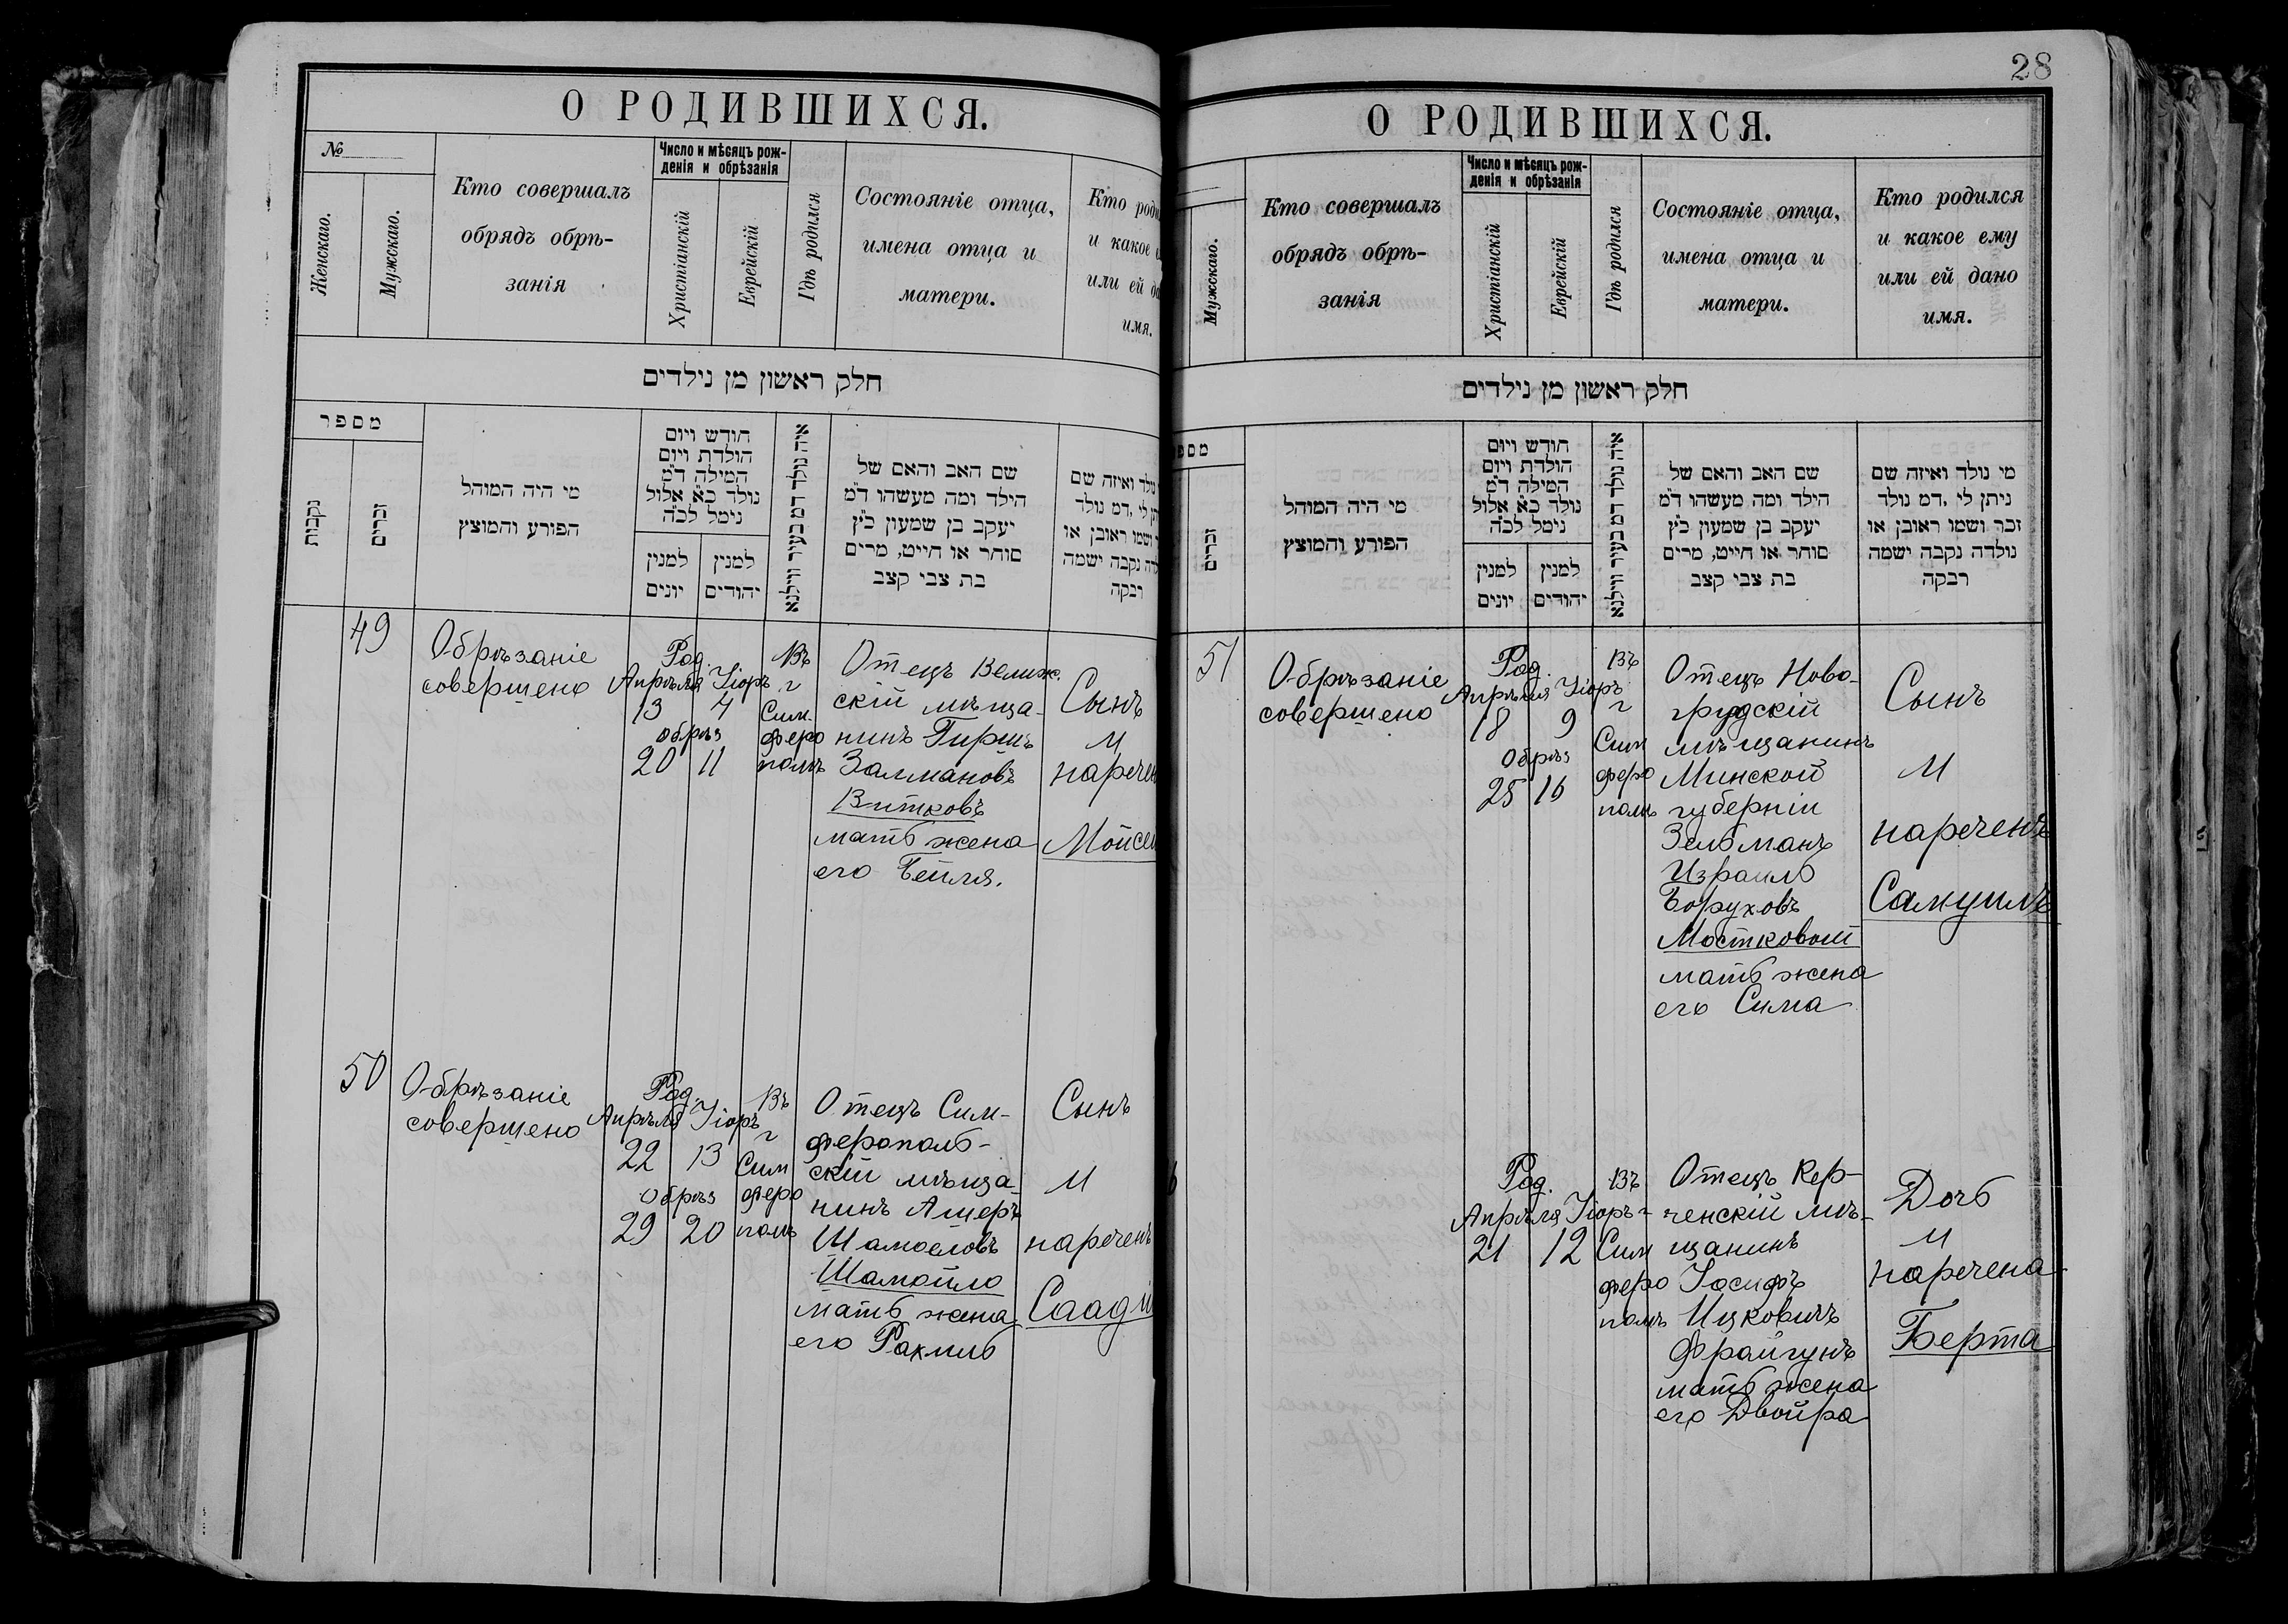 О РОДИВШИХСЯ.
№
Женскаго.
Мужскаго.
Кто совершалъ
обрядъ обрѣ-
занія
Число и мѣсяцъ рож-
денія и обрѣзанія
Христіанскій
Еврейскій
Гдѣ родился
Состояніе отца,
имена отца и
матери.
Кто роди
и какое
или ей да
имя.
חלק ראשון מן נילדים
מספר
נקבות
זכרים
מי היה המוהל
הפורע והמוצץ
חודש ויום
הולדת ויום
המילה ד״מ
נולד כ״א אלול
נימל לכ״ה
למנין
יונים
למנין
יהודים
איה נולד דמ בעיר ווילנא
שם האב והאם של
הילד ומה מעשהו ד״מ
יעקב בן שמעון כ״ץ
סוחר או חייט, מרים
בת צבי קצב
נולד ואיזה שם
תן לי ,דמ נולד
ושמו ראובן או
נקבה ישמה
רבקה
49
Обрѣзаніе
совершено
Род.
Апрѣля Іюръ
13 7
обрѣз
20 11
Въ
г
Сим-
феро
полѣ
Отецъ Велиж.
скій мѣща-
нинъ Гиршъ
Залмановъ
Витковъ
мать жена
его Бейля.
Сынъ
И
наречен
Мойсей
50
Обрѣзаніе
совершено
Род.
Апрѣля Іюръ
22 13
обрѣз
29 20
Въ
г
Сим
феро
полѣ
Отецъ Сим-
ферополь-
скій мѣща-
нинъ Ашеръ
Шамоеловъ
Шамойло
мать жена
его Рахиль
Сынъ
И
нареченъ
Саадій
28
О РОДИВШИХСЯ.
Мужскаго.
Кто совершалъ
обрядъ обрѣ-
занія
Число и мѣсяцъ рож-
денія и обрѣзанія
Христіанскій
Еврейскій
Гдѣ родился
Состояніе отца,
имена отца и
матери.
Кто родился
и какое ему
или ей дано
имя.
חלק ראשון מן נילדים
מספ
זכרים
מי היה המוהל
הפורע והמוצץ
חודש ויום
הולדת ויום
המילה ד״מ
נולד כ״א אלול
נימל לכ״ה
למנין
יונים
למנין
יהודים
איה נולד דמ בעיר ווילנא
שם האב והאם של
הילד ומה מעשהו ד״מ
יעקב בן שמעון כ״ץ
סוחר או חייט, מרים
בת צבי קצב
מי נולד ואיזה שם
ניתן לי ,דמ נולד
זכר ושמו ראובן או
נולדה נקבה ישמה
רבקה
51
Обрѣзаніе
совершено
Род.
Апрѣля Іюръ
18 9
Обрѣз
25 16
Въ
г
Сим
феро
полѣ
Отецъ Ново-
грудскій
мѣщанинъ
Минской
губерніи
Зельманъ
Израиль
Боруховъ
Мостковой
мать жена
его Сима
Сынъ
И
нареченъ
Самуилъ
Род.
Апрѣля Іюръ
21 12
Въ
г
Сим
феро
полѣ
Отецъ Кер-
ченскій мѣ-
щанинъ
Іосифъ
Ицковичъ
Фрайгунъ
мать жена
его Двойра
Дочь
И
наречена
Берта